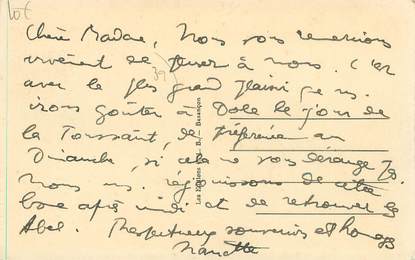 Lot
39
Chère Madame, Nous vous remercions
vivement de penser à nous. C'est
avec le plus grand plaisir q. ns.
irons goûter à Dole le jour de
la Toussaint, de préférence au
Dimanche, si cela ne vous dérange pas.
Nous ns. réjouissons de cette
bonne après midi et de retrouver les
Abel. Respectueux souvenirs et hommages
Nanette
Les Editions C. L. B. — Besançon